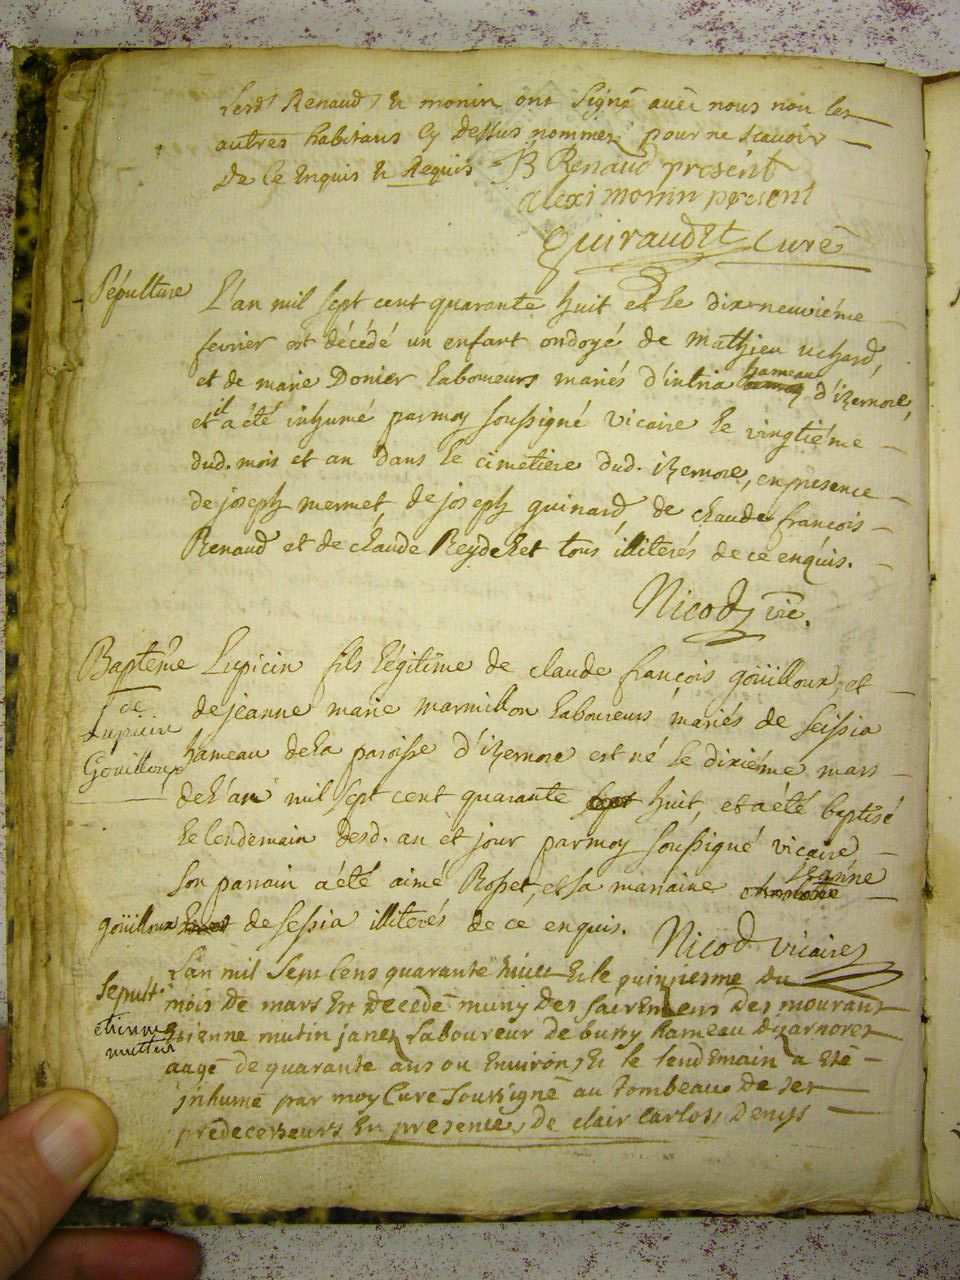 Lesd. Renaud, & monin ont signé avec nous non les
autres habitans Cy dessus nommez pour ne scavoir
de ce Enquis & Requis JB Renaud présent
alexi monin présent
Guiraudet Curé
Sépulture
L'an mil sept cent quarante huit et le dix neuvième
fevrier est décédé un enfant ondoyé de Mathieu uchard,
et de marie Donier laboureurs mariés d'intria hameau d'izernore,
et il a été inhumé par moy soussigné vicaire le vingtiéme
dud. mois et an dans le cimetiere dud. izernore, en presence
de joseph mermet, de joseph guinard de claude françois
Renaud et de claude Reydellet tous illiterés de ce enquis.
Nicod vic.
Baptême
de
Lupicin
Goüilloux
Lupicin fils légitime de claude françois goüilloux, et
de jeanne marie marmillon laboureurs mariés de seissia
hameau de la paroisse d'izernore est né le dixiéme mars
de l'an mil sept cent quarante sept huit, et a été baptisé
le lendemain desd. an et jour par moy soussigné vicaire
son parrain a été aimé Rosset, et sa marraine jeanne
goüilloux de sessia illiterés de ce enquis. Nicod vicaire
Sepult.
etienne
mutin
L'an mil sept cens quarante huict & le quinzieme du
mois de mars est decedé muny des sacremens des mourans
etienne mutin janez laboureur de bussy hameau dizarnore
aagé de quarante ans ou environ, & le lendemain a eté
inhumé par moy Curé soussigné au tombeau de ses
predecesseurs en presence de clair carlos, Denys